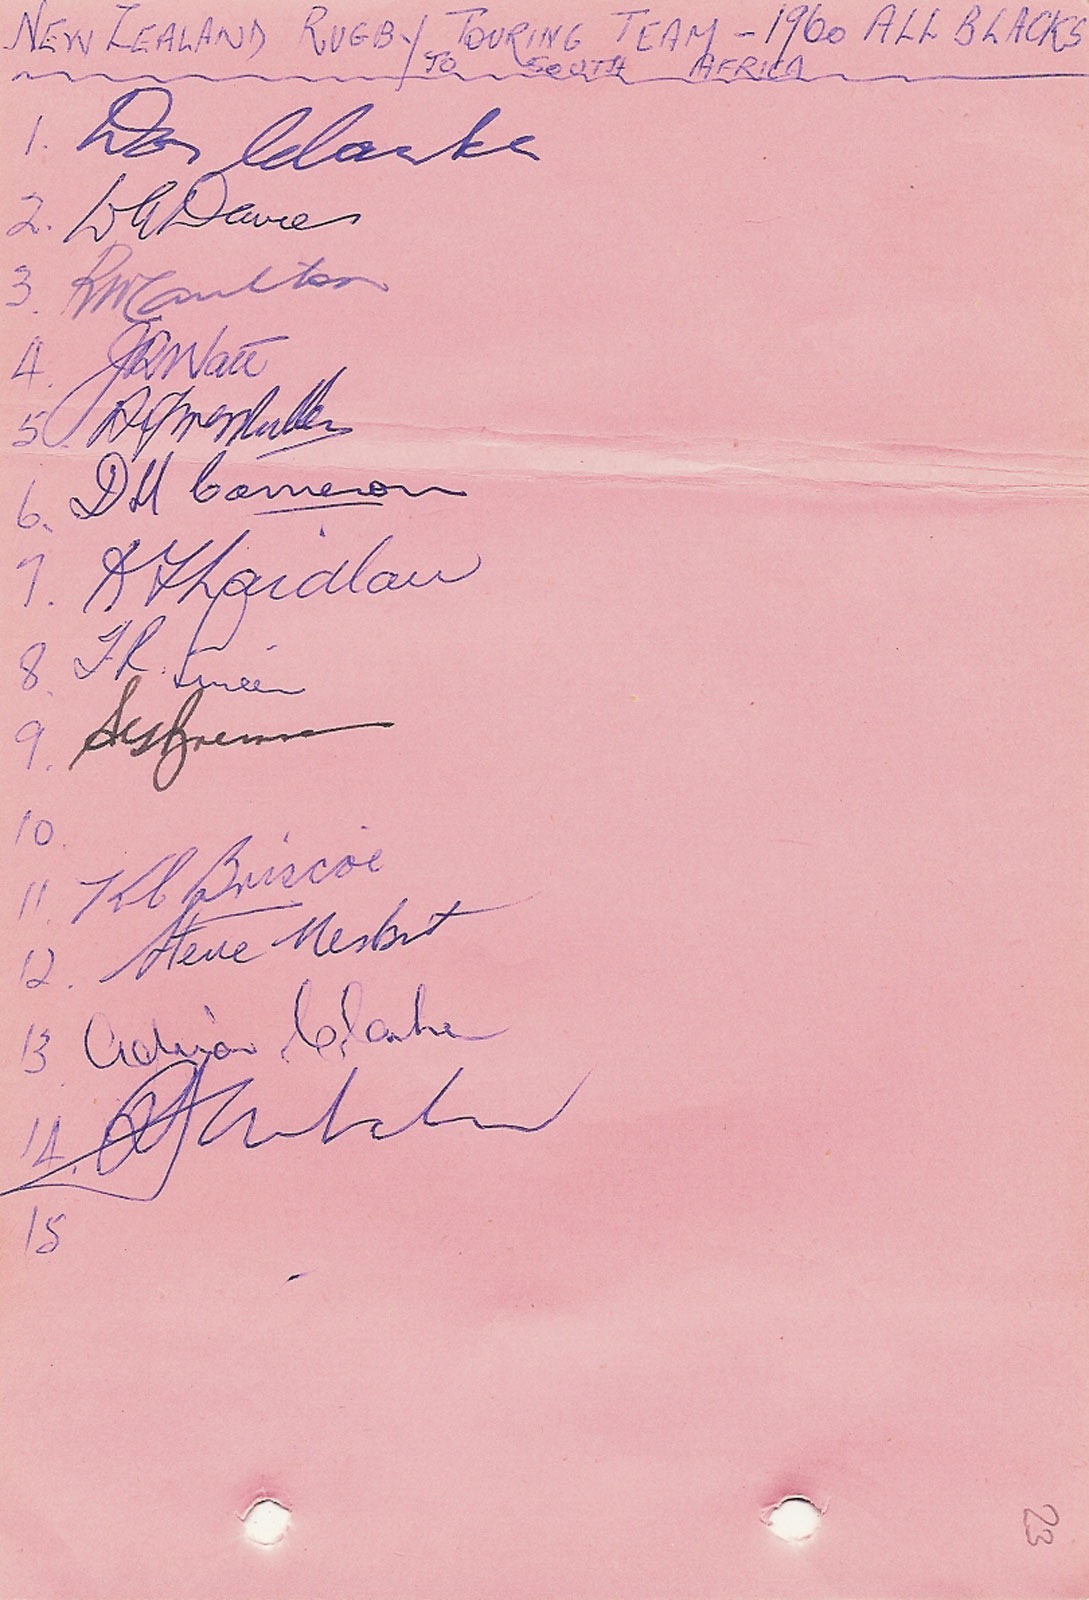 NEW ZEALAND RUGBY TOURING TEAM - 1960 ALL BLACKS
TO SOUTH AFRICA
1. Don Clarke
2. W A Davies
3. R W Caulton
4. J R Watt
5. D F McMullen
6. D M Cameron
7. K F Laidlaw
8. T R Lineen
9. S G Bremner
10.
11. K C Briscoe
12. Steve Nesbit
13 Adrian Clarke
14.
15
23